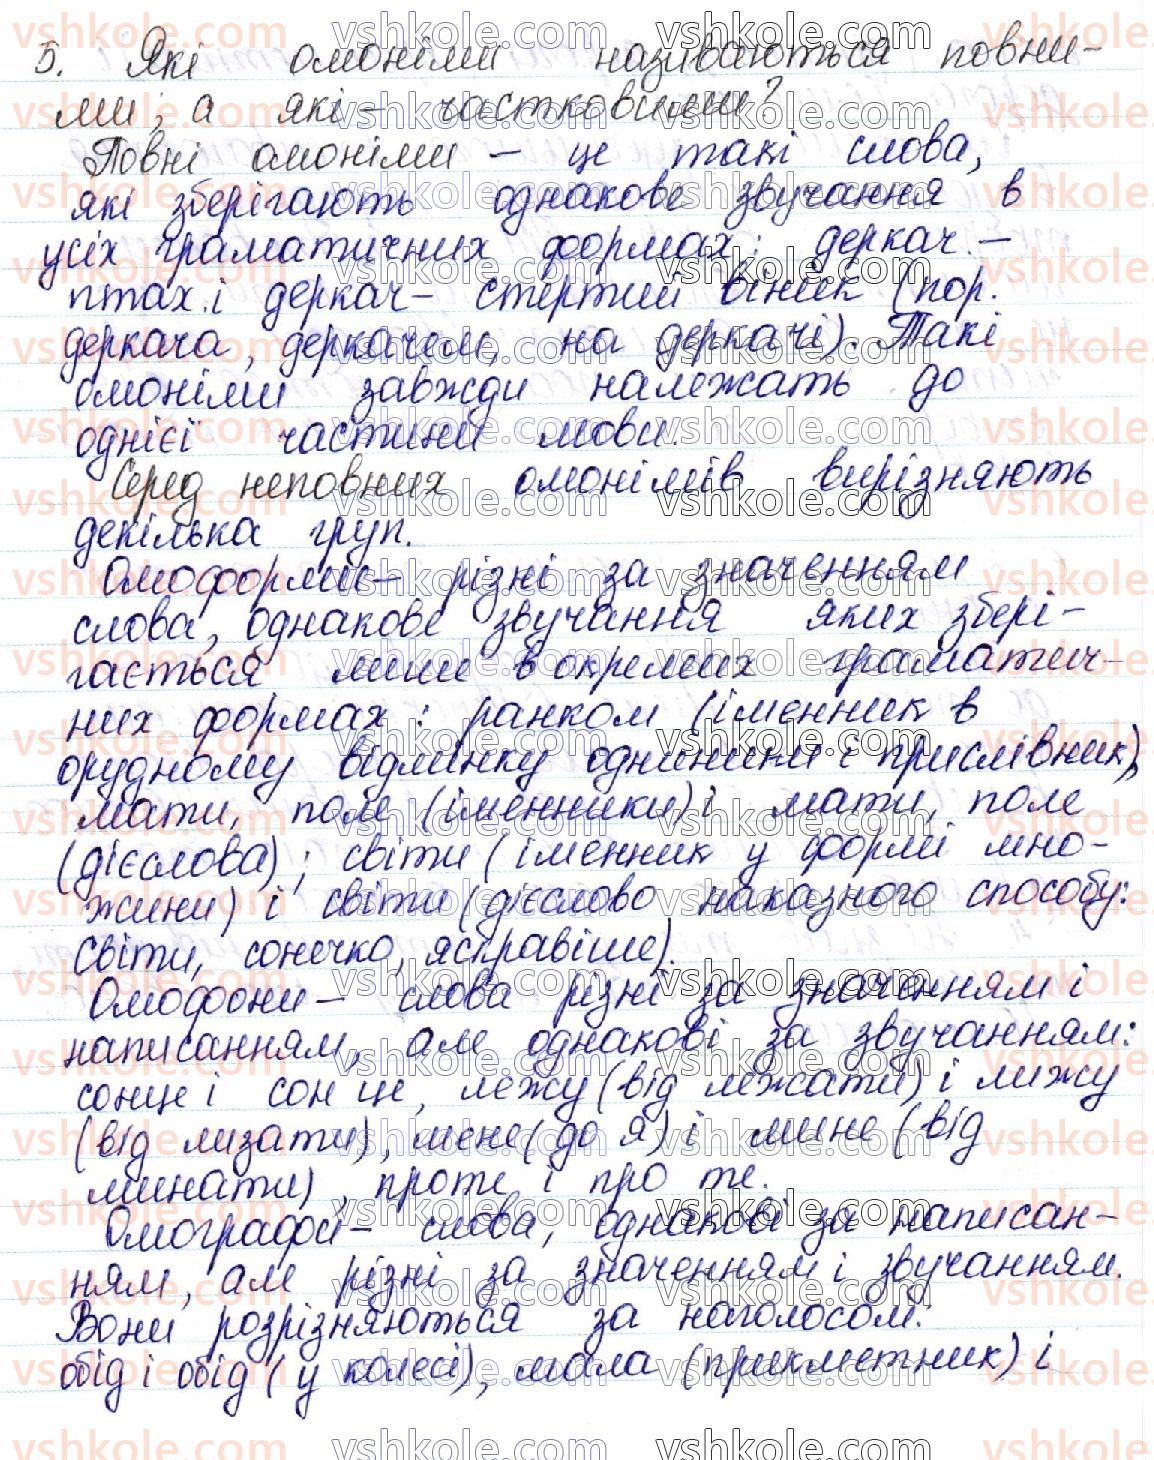 5. Які омоніми називаються повни-
ми, а які - частковими?
Повні омоніми - це такі слова,
які зберігають однакове звучання в
усіх граматичних формах: деркач -
птах і деркач - стертий віник (пор.
деркача, деркачем, на деркачі). Такі
омоніми завжди належать до
однієї частини мови.
Серед неповних омонімів вирізняють
декілька груп.
Омоформи - різні за значенням
слова, однакове звучання яких збері-
гається лише в окремих граматич-
них формах: ранком (іменник в
орудному відмінку однини і прислівник),
мати, поле (іменники) і мати, поле
(дієслова); світи (іменник у формі мно-
жини) і світи (дієслово наказного способу:
світи, сонечко, яскравіше).
Омофони - слова різні за значенням і
написанням, але однакові за звучанням:
сонце і сон це, лежу (від лежати) і лижу
(від лизати), мене (до я) і мине (від
минати), проте і про те.
Омографи - слова, однакові за написан-
ням, але різні за значенням і звучанням.
Вони розрізняються за наголосом:
обід і обід (у колесі), мала (прикметник) і